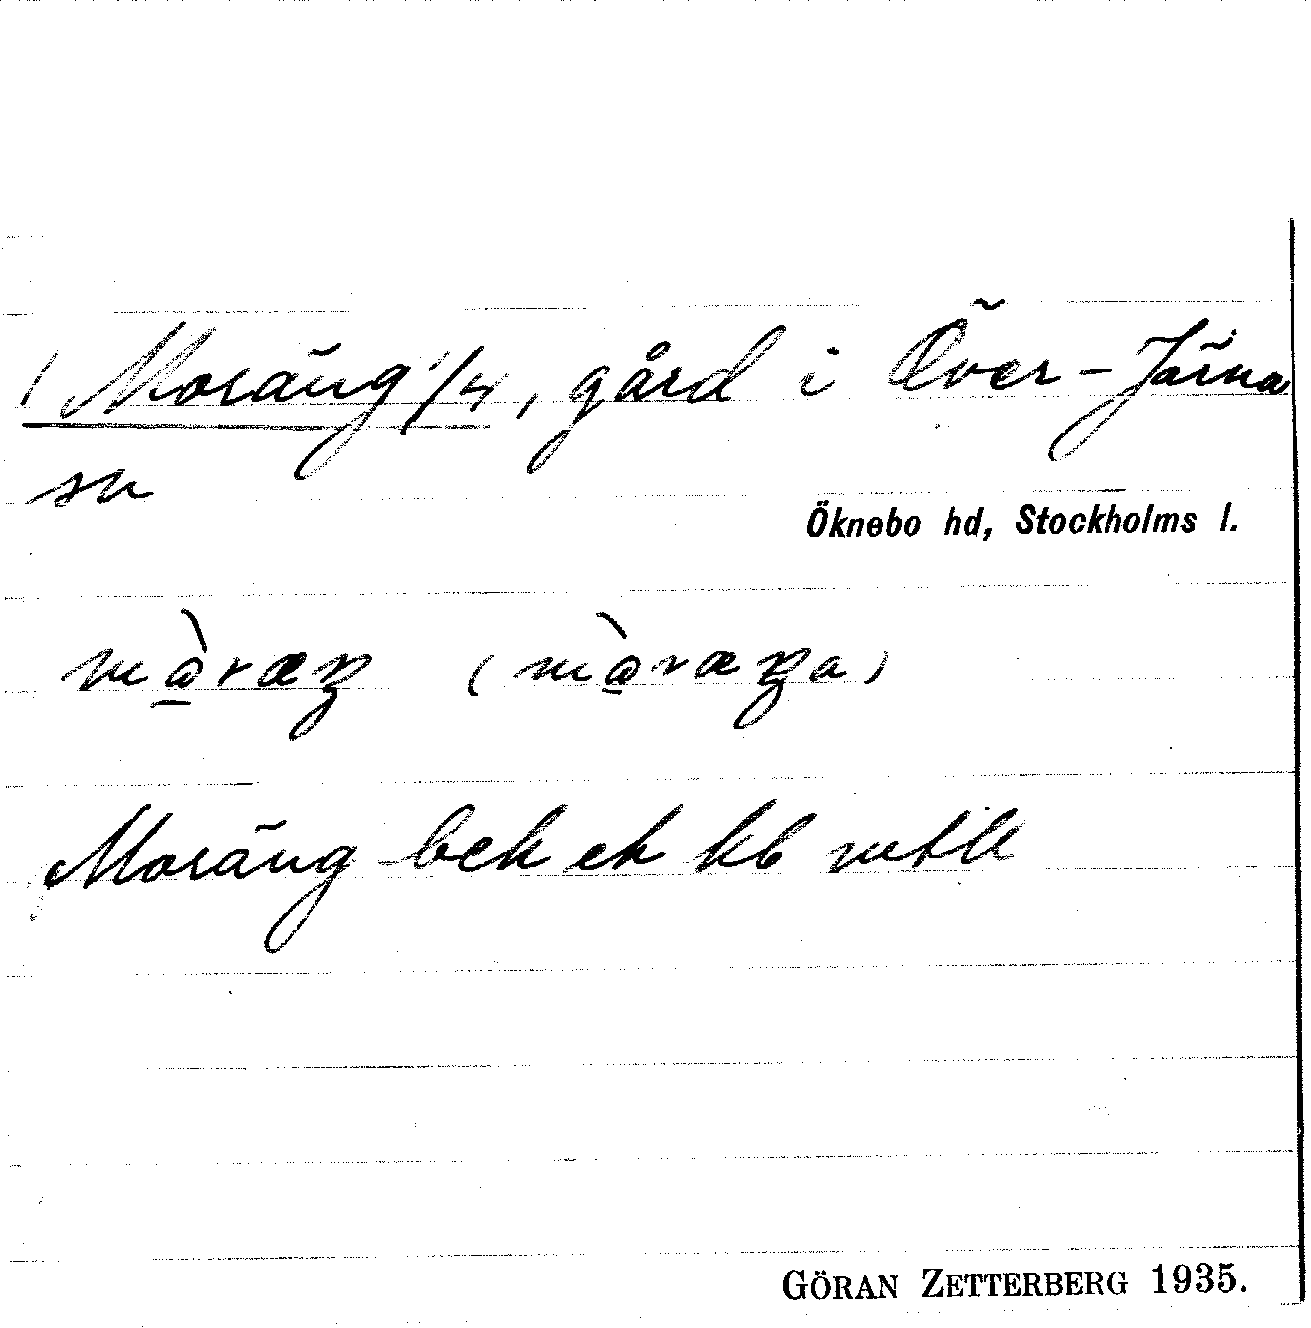 1 Moräng 1/4, gård i Över-Järna
sn
Öknebo hd, Stockholms l.
Moräng bek ek kb mtlk
GÖRAN ZETTERBERG 1935.